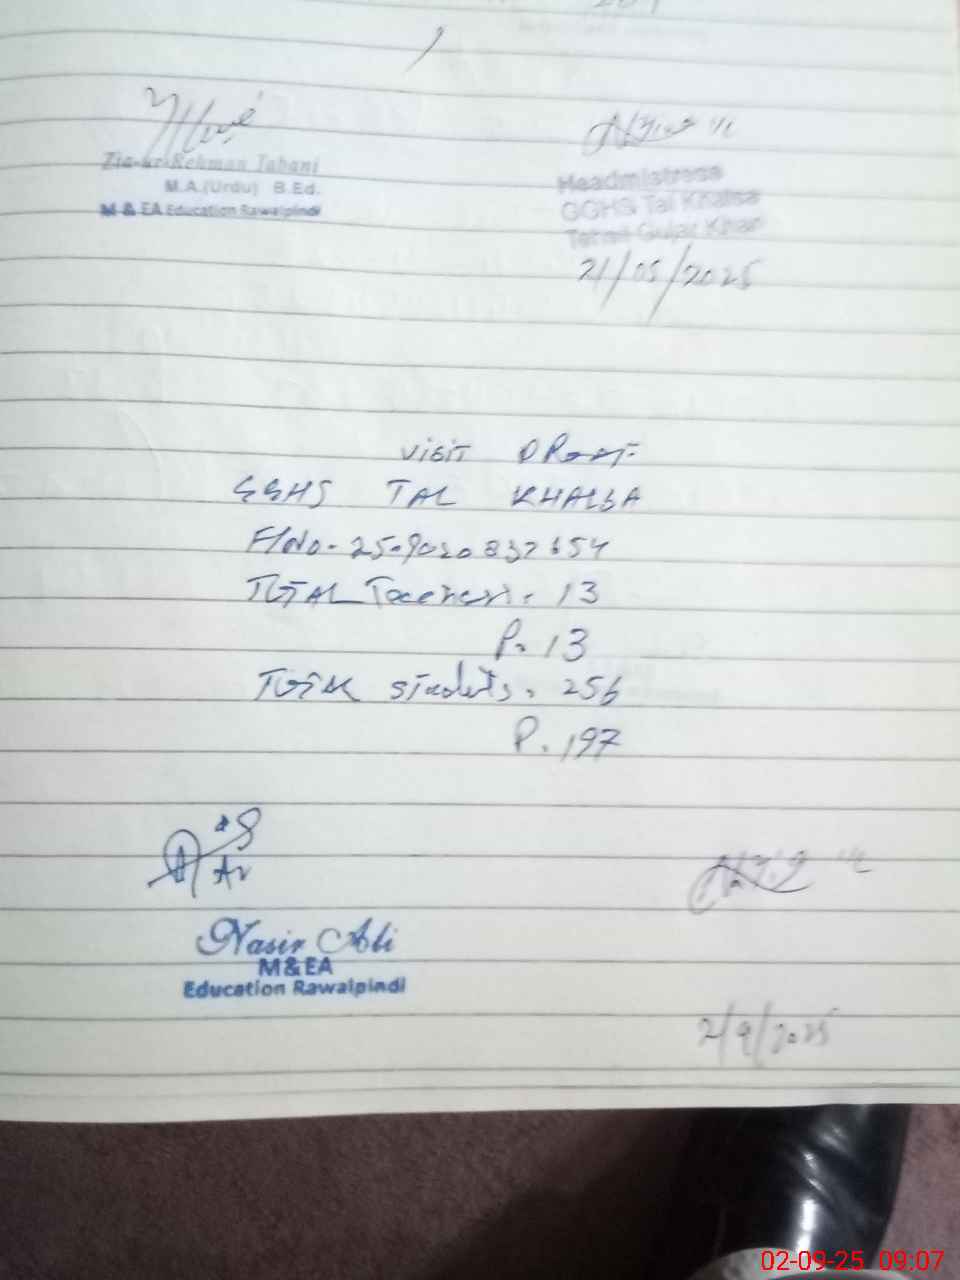 Zia-ur-Rehman Tabani
M.A.(Urdu) B.Ed.
M & EA Education Rawalpindi
Headmistress
GGHS Tal Khalsa
Tehsil Gujar Khan
21/05/2025
VISIT PROOF
GGHS TAL KHALSA
F/No. 25-9020837654
TOTAL Teachers. 13
P. 13
TOTAL students. 256
P. 197
Nasir Ali
M&EA
Education Rawalpindi
2/9/2025
02-09-25 09:07